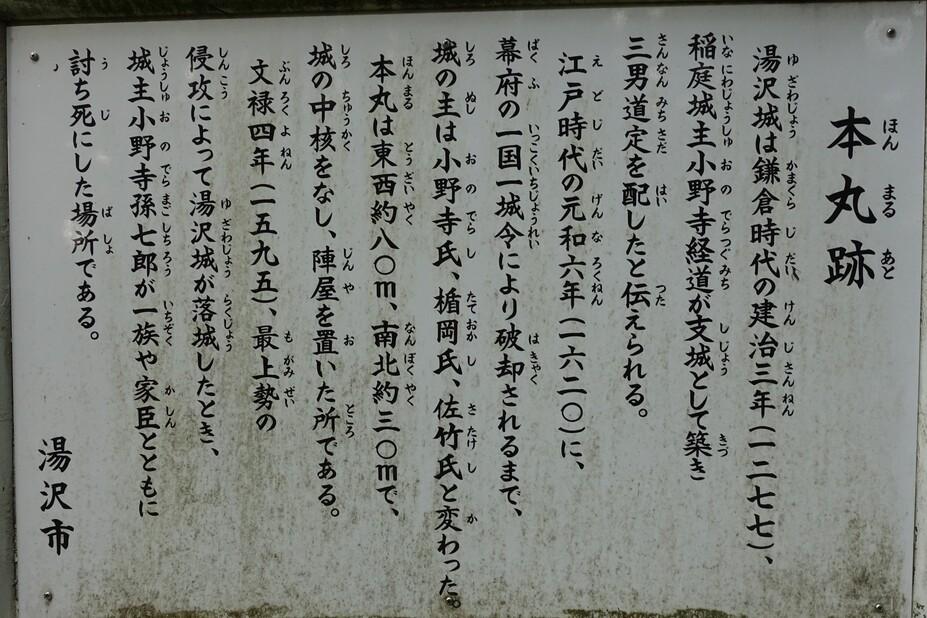 本丸跡
湯沢城は鎌倉時代の建治三年(一二七七)、
稲庭城主小野寺経道が支城として築き
三男道定を配したと伝えられる。
江戸時代の元和六年(一六二〇)に、
幕府の一国一城令により破却されるまで、
城の主は小野寺氏、楯岡氏、佐竹氏と変わった。
本丸は東西約八〇m、南北約三〇mで、
城の中核をなし、陣屋を置いた所である。
文禄四年(一五九五)、最上勢の
侵攻によって湯沢城が落城したとき、
城主小野寺孫七郎が一族や家臣とともに
討ち死にした場所である。
湯沢市